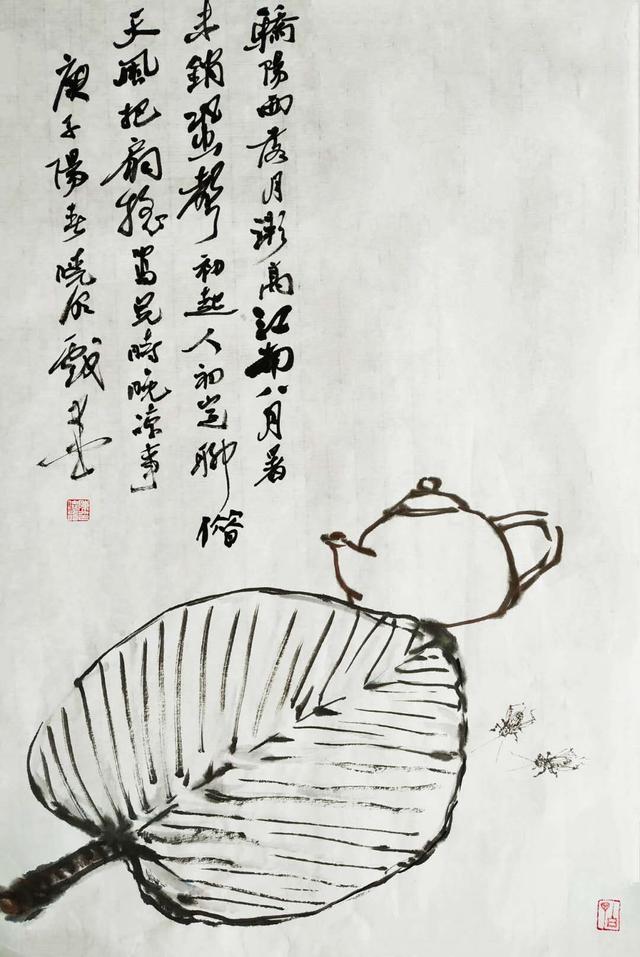 驕陽西落月漸高江南八月暑
未銷蛩聲初起人初定聊借
天風把扇摇寫兒時晚凉事
庚子陽春曉戲墨